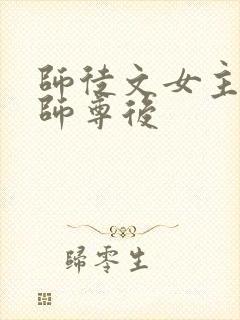 師徒文女主
師尊後
歸零生